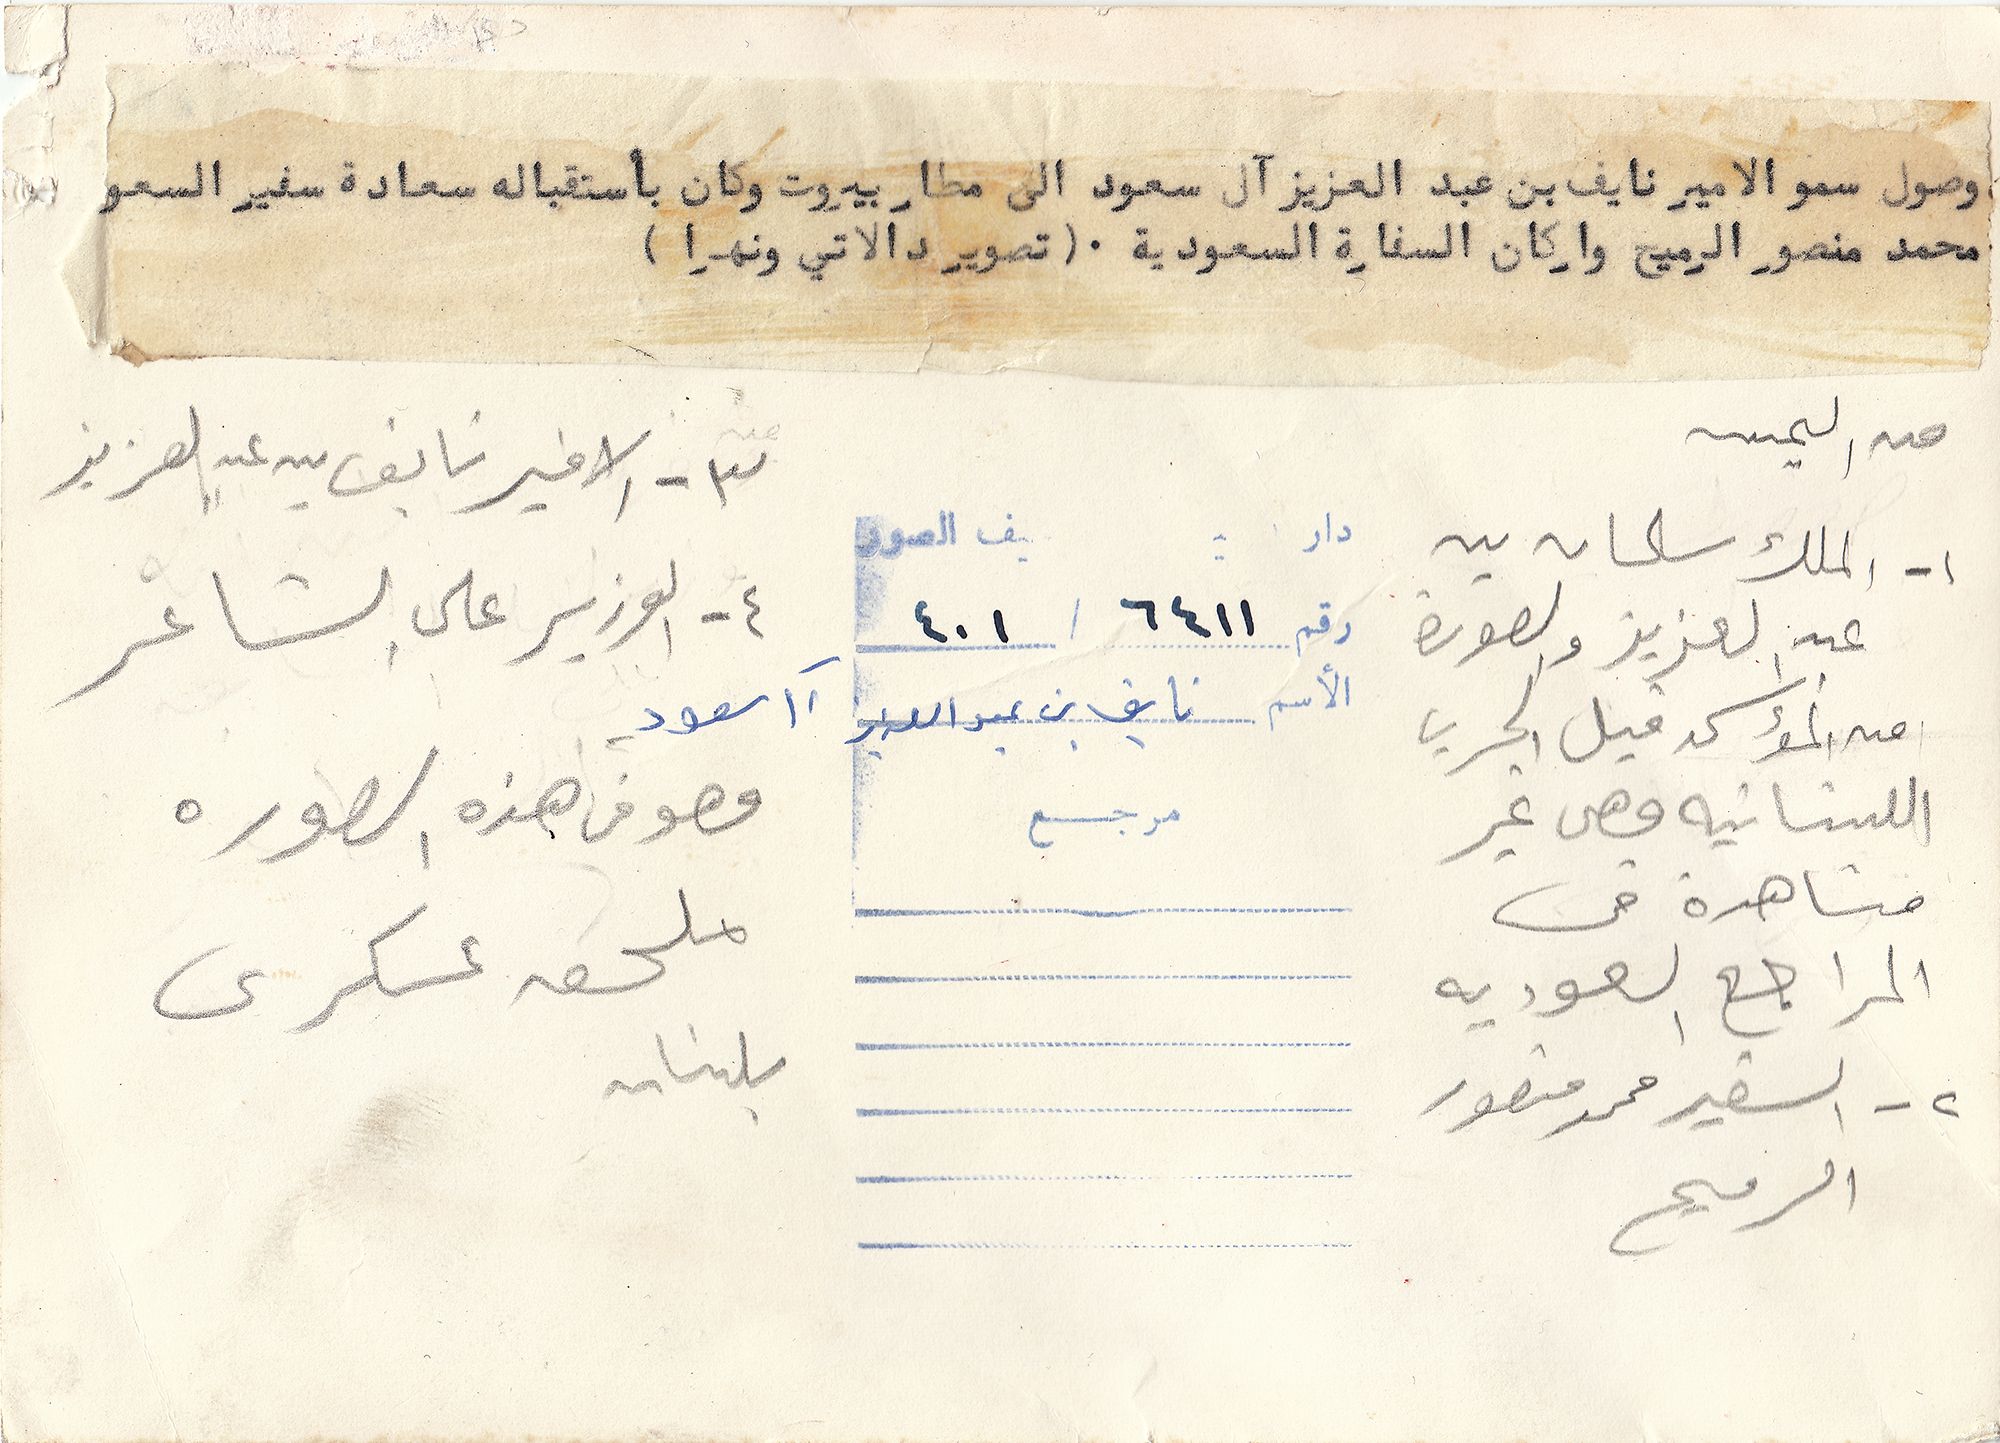 وصول سمو الامير نايف بن عبد العزيز آل سعود الى مطار بيروت وكان بأستقباله سعادة سفير السعو
محمد منصور الرميح واركان السفارة السعودية . ( تصوير دالاتي ونهرا )
من اليمين
١- الملك سلمان بن
عبد العزيز والصورة
من المؤكد قبل الحرب
اللبنانيه وهى غير
مشاهدة فى
المراجع السعوديه
٢- السفير محمد منصور
الرميح
دار يف الصور
رقم ٦٤١١ / ٤٠١
الأسم نايف بن عبد العزيز آل سعود
مرجع
٣- الامير نايف بن عبد العزيز
٤- الوزير على الشاعر
وهو فى هذه الصوره
ملحق عسكرى
بلبنان